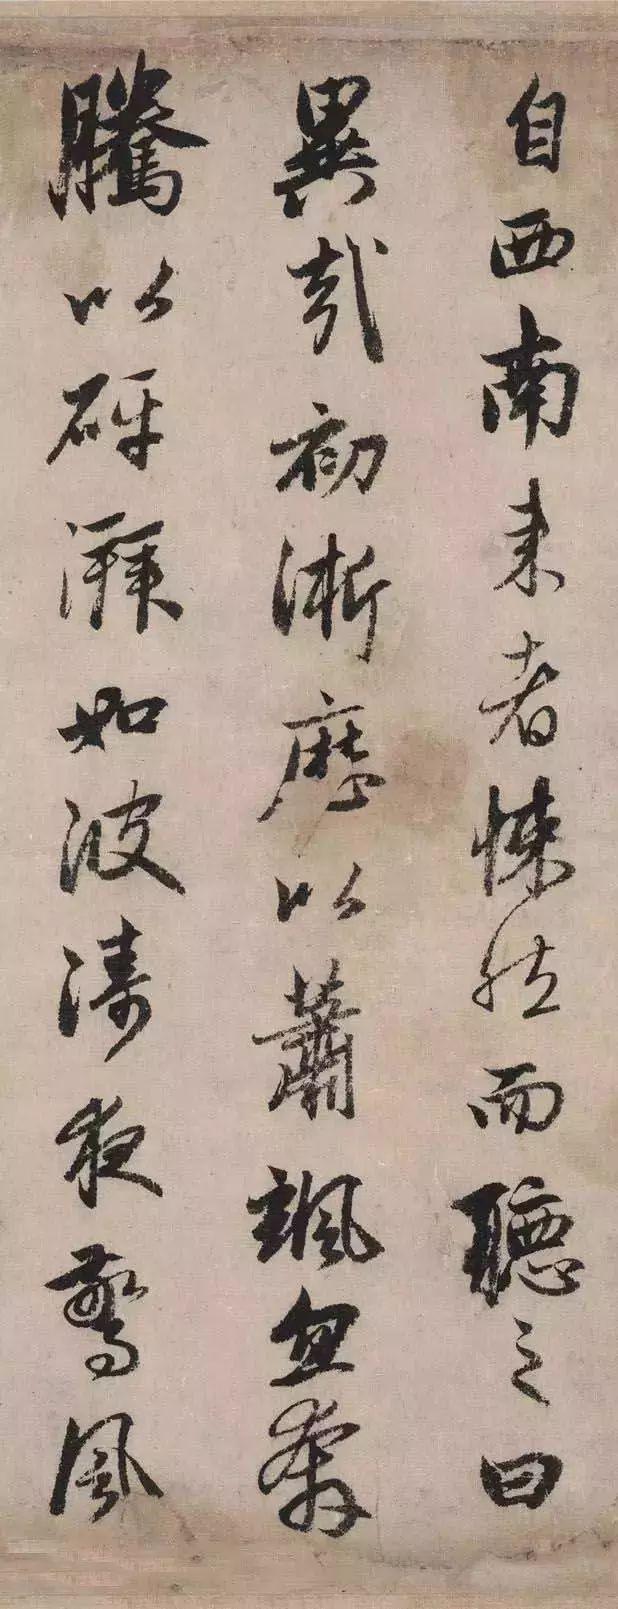 自西南来者悚然而聽之曰
異哉初淅歷以蕭颯忽奔
騰以砰湃如波濤夜驚風